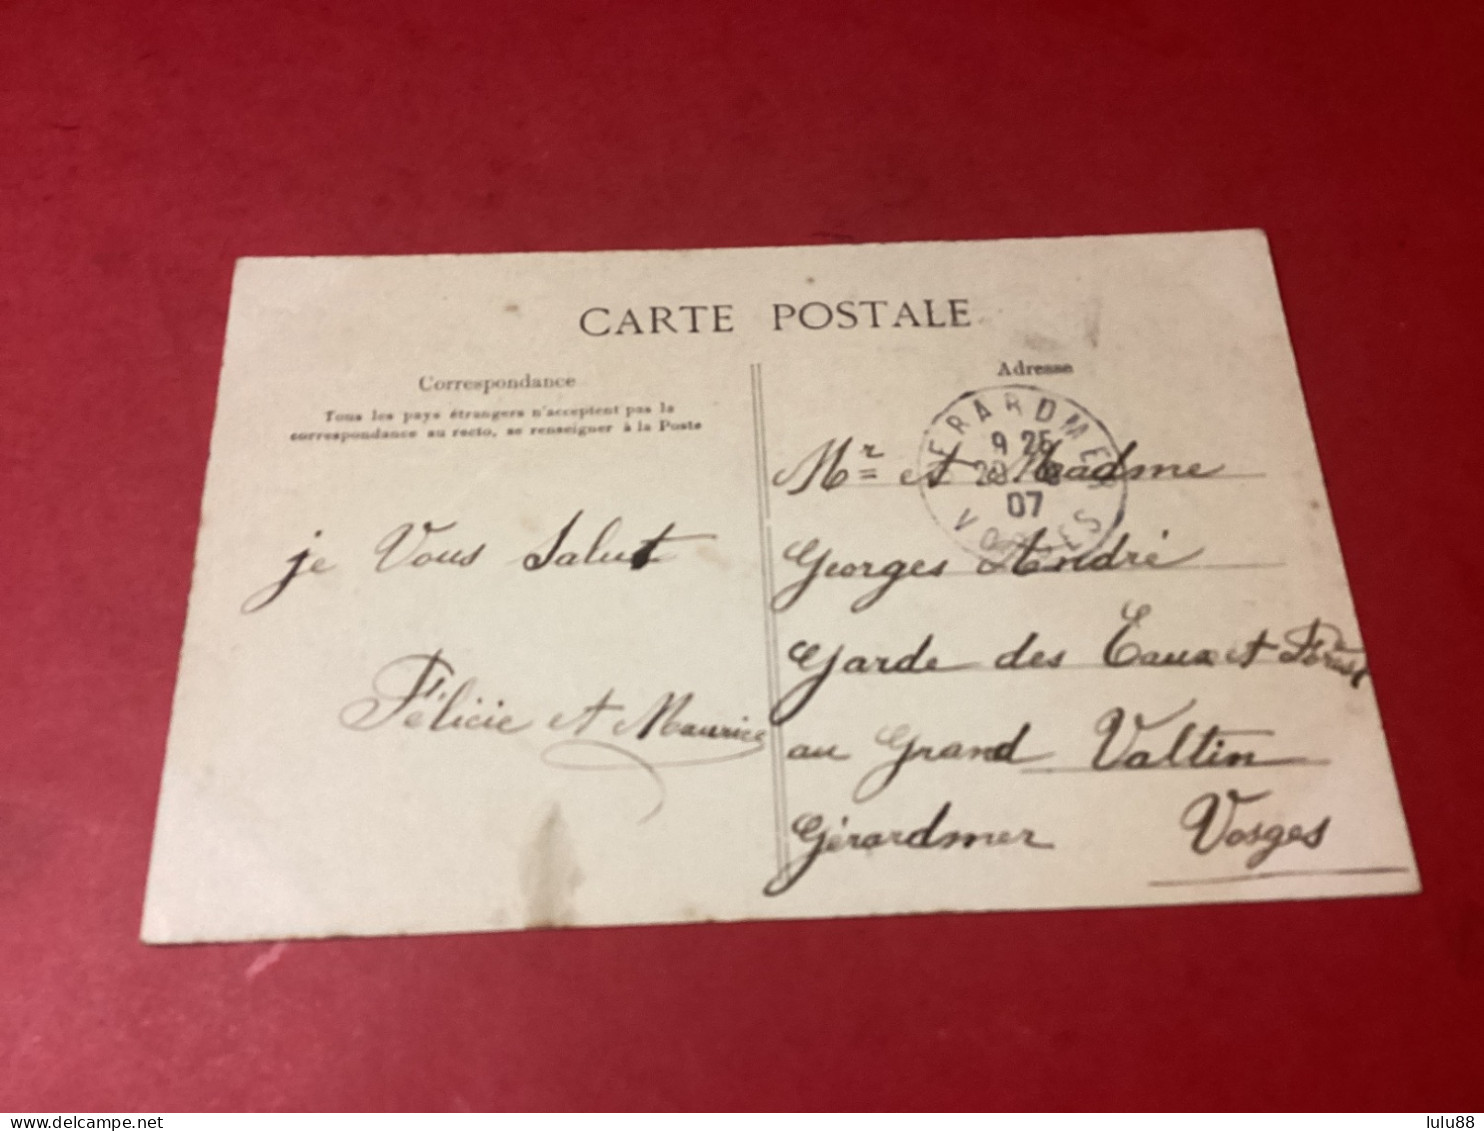 CARTE POSTALE
Correspondance
Tous les pays étrangers n'acceptent pas la
correspondance au recto, se renseigner à la Poste
je Vous Salut
Félicie et Maurice
Adresse
GERARDMER
9 25
07
VOSGES
Mr et Madme
Georges André
Garde des Eaux et
au Grand Valtin
Gérardmer Vosges
lulu88